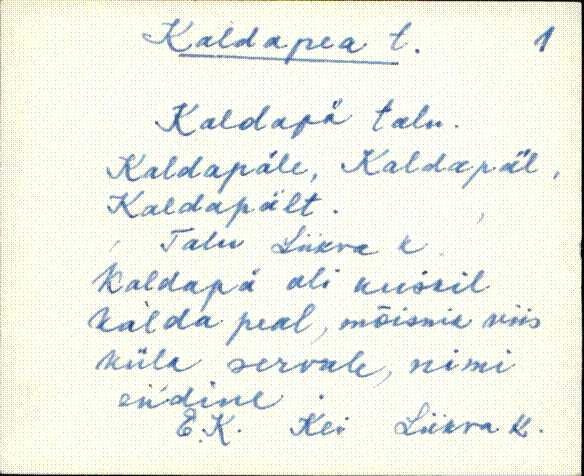 Kaldapea t. 1
Kaldapä talu.
Kaldapäle, Kaldapäl,
Kaldapält.
Talu Liikva k.
Kaldapä oli kuskil
kalda peal, mõisnik viis
küla servale, nimi
endine.
E.K. Kei Liikva k.